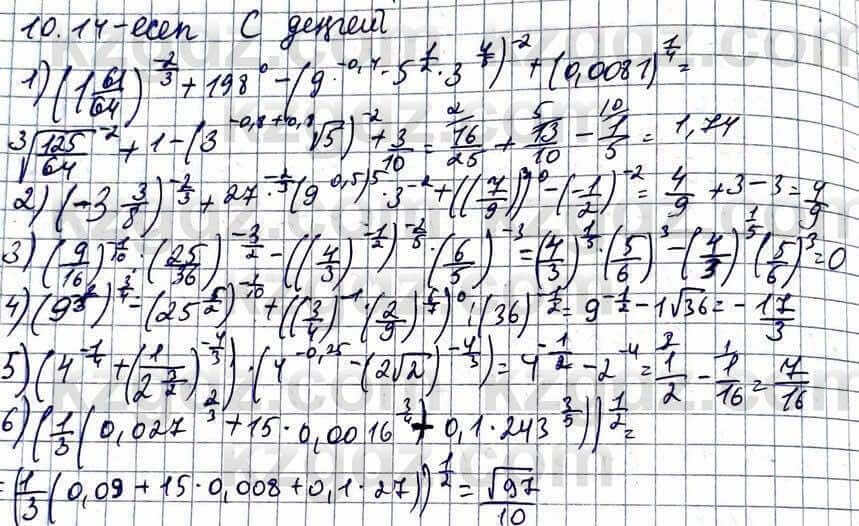 10.14-есеп С деңгей
1) (1 61/64)^(-2/3) + 198^0 - (9^(-0,4) · 5^(1/2) · 3^(4/5))^(-2) + (0,0081)^(1/4) =
∛(125/64)^(-2) + 1 - (3^(-0,8+0,8) √5)^(-2) + 3/10 = 16/25 + 13/10 - 1/5 = 1,74
2) (-3 3/8)^(-2/3) + 27^(-2/3) · (9^(0,5))^5 · 3^(-2) + ((7/9)^9)^0 - (-1/2)^(-2) = 4/9 + 3 - 3 = 4/9
3) (9/16)^(-1/10) · (25/36)^(-3/2) - ((4/3)^(-1/2))^(-2/5) · (6/5)^(-3) = (4/3)^(1/5) · (5/6)^3 - (4/3)^(1/5) (5/6)^3 = 0
4) ((3/4)^(-1) · (2/9) : (36)^(-1/2) = 9^(-1/2) - 1√36 = -17/3
5) (4^(-1/4) + (1/2^(3/2))^(-4/3)) · (4^(-0,25) - (2√2)^(-4/3)) = 4^(-1/2) - 2^(-4) = 1/2 - 1/16 = 7/16
6) (1/3 (0,027^(2/3) + 15 · 0,0016^(3/4) + 0,1 · 243^(3/5)))^(1/2) =
= (1/3 (0,09 + 15 · 0,008 + 0,1 · 27))^(1/2) = √97/10
kzgdz.com